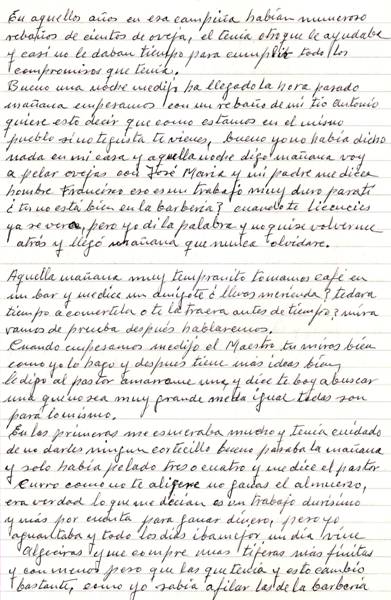 En aquellos años en esa campiña habían numeroso
rebaños de cientos de oveja, el tenía otro que le ayudaba
y casi no le daban tiempo para cumplir todo los
compromisos que tenía.
Bueno una noche me dijo ha llegado la hora pasado
mañana empesamos con un rebaño de mi tío Antonio
quiere esto decir que como estamos en el mismo
pueblo si no te gusta te vienes, bueno yo no había dicho
nada en mi casa y aquella noche digo mañana voy
a pelar ovejas con José María y mi padre me dice
hombre Francisco eso es un trabajo muy duro para ti
¿tu no está bien en la barbería? cuando te licencies
ya se verá, pero yo di la palabra y no quise volverme
atrás y llegó mañana que nunca olvidare.
Aquella mañana muy tempranito tomamos café en
un bar y me dice un amigote ¿llevas merienda? te dara
tiempo a comertela o te la traera antes de tiempo? mira
vamos de prueba después hablaremos.
Cuando empesamos me dijo el Maestro tu miras bien
como yo lo hago y después tiene más ideas bien
le digo al pastor amarrame una, y dice te boy a buscar
una que no sea muy grande me da igual todas son
para lo mismo.
En las primeras me esmeraba mucho y tenía cuidado
de no darles ningun cortecillo bueno pasaba la mañana
y solo había pelado tres o cuatro y me dice el pastor
Curro como no te aligere no ganas el almuerzo,
era verdad lo que me decían es un trabajo durísimo
y más por cuenta para ganar dinero, pero yo
aguantaba y todo los dias iba mejor un día vine
Algeciras y me compre unas tijeras más finitas
y con menos peso que las que tenía y esto cambio
bastante, como yo sabía afilar las de la barbería